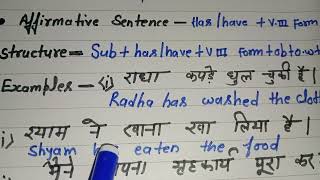 • Affirmative Sentence - Has/have + V.III Form
Structure - Sub + has/have + V III form + ob + o.wt
Examples - (i) राधा कपड़े धुल चुकी है।
Radha has washed the Cloth
i) श्याम ने खाना खा लिया है।
Shyam eaten the food
मैने अपना गृहकार्य पूरा कर